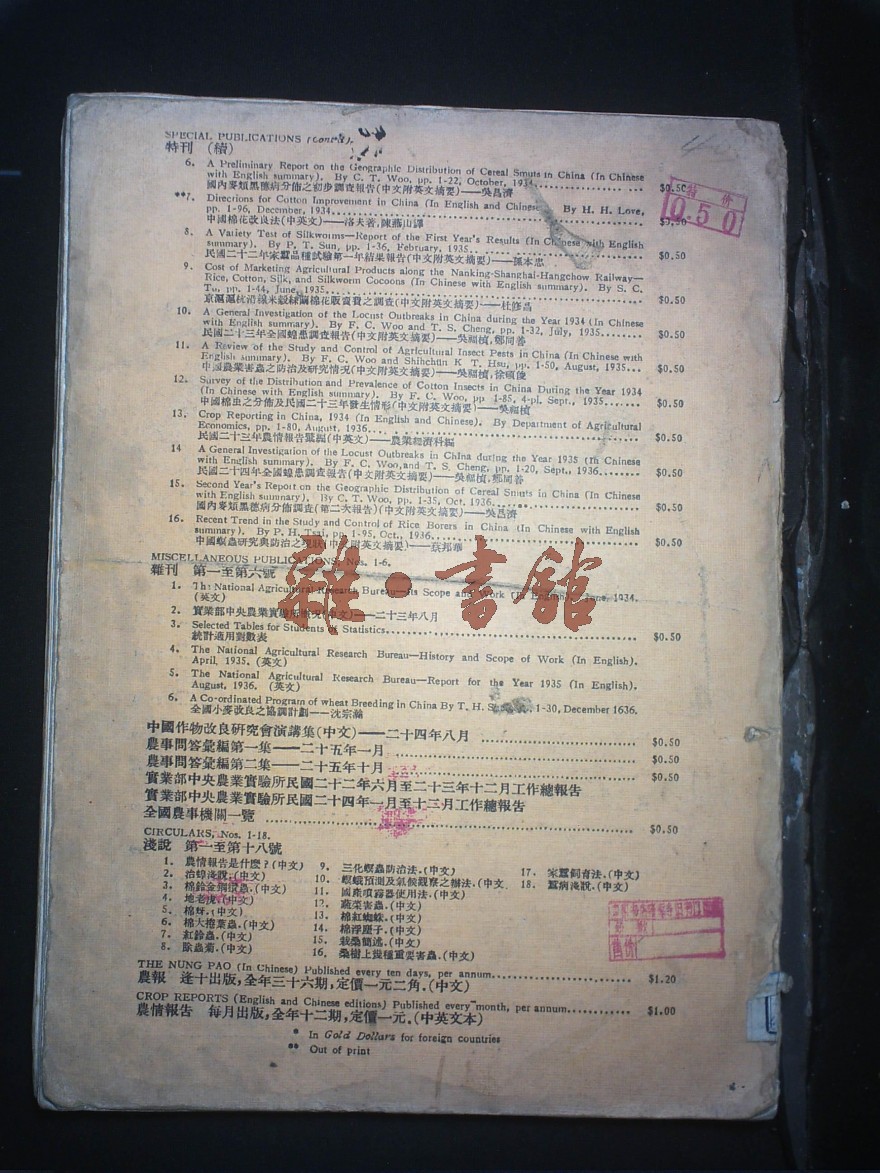 SPECIAL PUBLICATIONS
特刊 (續)
6. A Preliminary Report on the Geographic Distribution of Cereal Smuts in China (In Chinese
with English summary). By C. T. Woo, pp. 1-22, October, 1934 $0.50
國內麥類黑穗病分佈之初步調查報告(中文附英文摘要)——吳昌濟
**7. Directions for Cotton Improvement in China (In English and Chinese By H. H. Love,
pp. 1-96, December, 1934 $0.50
中國棉花改良法(中英文)——洛夫著,陳燕山譯
8. A Variety Test of Silkworms—Report of the First Year's Results (In Chinese with English
summary). By P. T. Sun, pp. 1-36, February, 1935 $0.50
民國二十二年家蠶品種試驗第一年結果報告(中文附英文摘要)——孫本忠
9. Cost of Marketing Agricultural Products along the Nanking-Shanghai-Hangchow Railway—
Rice, Cotton, Silk, and Silkworm Cocoons (In Chinese with English summary). By S. C.
Tu, pp. 1-44, June, 1935 $0.50
京滬滬杭沿線米穀絲繭棉花販賣費之調查(中文附英文摘要)——杜修昌
10. A General Investigation of the Locust Outbreaks in China during the Year 1934 (In Chinese
with English summary). By F. C. Woo and T. S. Cheng, pp. 1-32, July, 1935 $0.50
民國二十三年全國蝗患調查報告(中文附英文摘要)——吳福楨,鄭同善
11. A Review of the Study and Control of Agricultural Insect Pests in China (In Chinese with
English summary). By F. C. Woo and Shihchun K T. Hsu, pp. 1-50, August, 1935 $0.50
中國農業害蟲之防治及研究情況(中文附英文摘要)——吳福楨,徐碩俊
12. Survey of the Distribution and Prevalence of Cotton Insects in China During the Year 1934
(In Chinese with English summary). By F. C. Woo, pp 1-85, 4-pl. Sept., 1935 $0.50
中國棉虫之分佈及民國二十三年發生情形(中文附英文摘要)——吳福楨
13. Crop Reporting in China, 1934 (In English and Chinese). By Department of Agricultural
Economics, pp. 1-80, August, 1936 $0.50
民國二十三年農情報告彙編(中英文)——農業經濟科編
14 A General Investigation of the Locust Outbreaks in China during the Year 1935 (In Chinese
with English summary). By F. C. Woo, and T. S. Cheng, pp. 1-20, Sept., 1936 $0.50
民國二十四年全國蝗患調查報告(中文附英文摘要)——吳福楨,鄭同善
15. Second Year's Report on the Geographic Distribution of Cereal Smuts in China (In Chinese
with English summary). By C. T. Woo, pp. 1-35, Oct. 1936 $0.50
國內麥類黑穗病分佈調查(第二次報告)(中文附英文摘要)——吳昌濟
16. Recent Trend in the Study and Control of Rice Borers in China (In Chinese with English
summary). By P. H. Tsai, pp. 1-95, Oct., 1936 $0.50
中國螟蟲研究與防治之現狀(中文附英文摘要)——蔡邦華
MISCELLANEOUS PUBLICATIONS, Nos. 1-6.
雜刊 第一至第六號
1. The National Agricultural Research Bureau—its Scope and Work (In English), June, 1934.
(英文)
2. 實業部中央農業實驗所概況(中文)——二十三年八月
3. Selected Tables for Students of Statistics $0.50
統計適用對數表
4. The National Agricultural Research Bureau—History and Scope of Work (In English).
April, 1935. (英文)
5. The National Agricultural Research Bureau—Report for the Year 1935 (In English).
August, 1936. (英文)
6. A Co-ordinated Program of wheat Breeding in China By T. H. 1-30, December 1636.
全國小麥改良之協調計劃——沈宗瀚
雜·書館
中國作物改良研究會演講集(中文)——二十四年八月 $0.50
農事問答彙編第一集——二十五年一月 $0.50
農事問答彙編第二集——二十五年十月 $0.50
實業部中央農業實驗所民國二十二年六月至二十三年十二月工作總報告
實業部中央農業實驗所民國二十四年一月至十二月工作總報告
全國農事機關一覽 $0.50
CIRCULARS, Nos. 1-18.
淺說 第一至第十八號
1. 農情報告是什麼?(中文)
2. 治蝗淺說.(中文)
3. 棉鈴金鋼鑽蟲.(中文)
4. 地老虎.(中文)
5. 棉蚜.(中文)
6. 棉大捲葉蟲.(中文)
7. 紅鈴蟲.(中文)
8. 除蟲菊.(中文)
9. 三化螟蟲防治法.(中文)
10. 螟蛾預測及氣候觀察之辦法.(中文
11. 國產噴霧器使用法.(中文)
12. 蔬菜害蟲.(中文)
13. 棉紅蜘蛛.(中文)
14. 棉浮塵子.(中文)
15. 栽桑簡述.(中文)
16. 桑樹上幾種重要害蟲.(中文)
17. 家蠶飼育法.(中文)
18. 蠶病淺說.(中文)
THE NUNG PAO (In Chinese) Published every ten days, per annum $1.20
農報 逢十出版,全年三十六期,定價一元二角.(中文)
CROP REPORTS (English and Chinese editions) Published every month, per annum $1.00
農情報告 每月出版,全年十二期,定價一元.(中英文本)
* In Gold Dollars for foreign countries
** Out of print
特价
0.50
售价